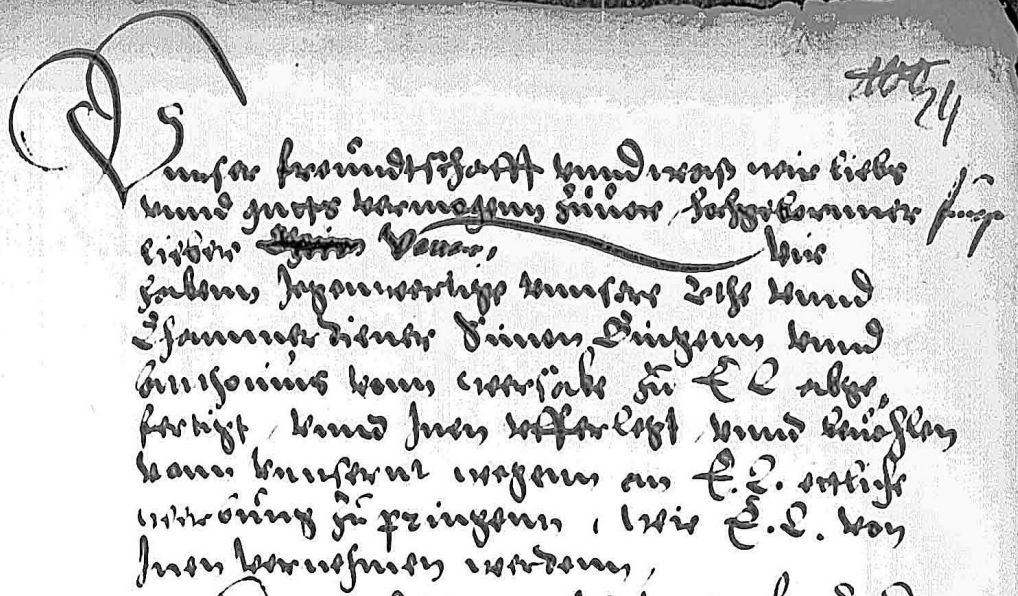 Vnser freundtschafft vnnd was wir liebs
vnnd guets vermogenn zuuor, Hochgeborner furst
lieber Vetter, Wir
habenn Jegenwertige vnnsere Rethe vnnd
Chammerdiener Simon Bingenn vnnd
Anthonius vonn Wersabe zu E L abge,
fertigt, vnnd Jnen vfferlegt, vnnd beuohlen
vonn vnnsernt wegenn an E.L. ettliche
werbung zu pringenn, wie E.L. von
Jnen vernehmen werdenn,